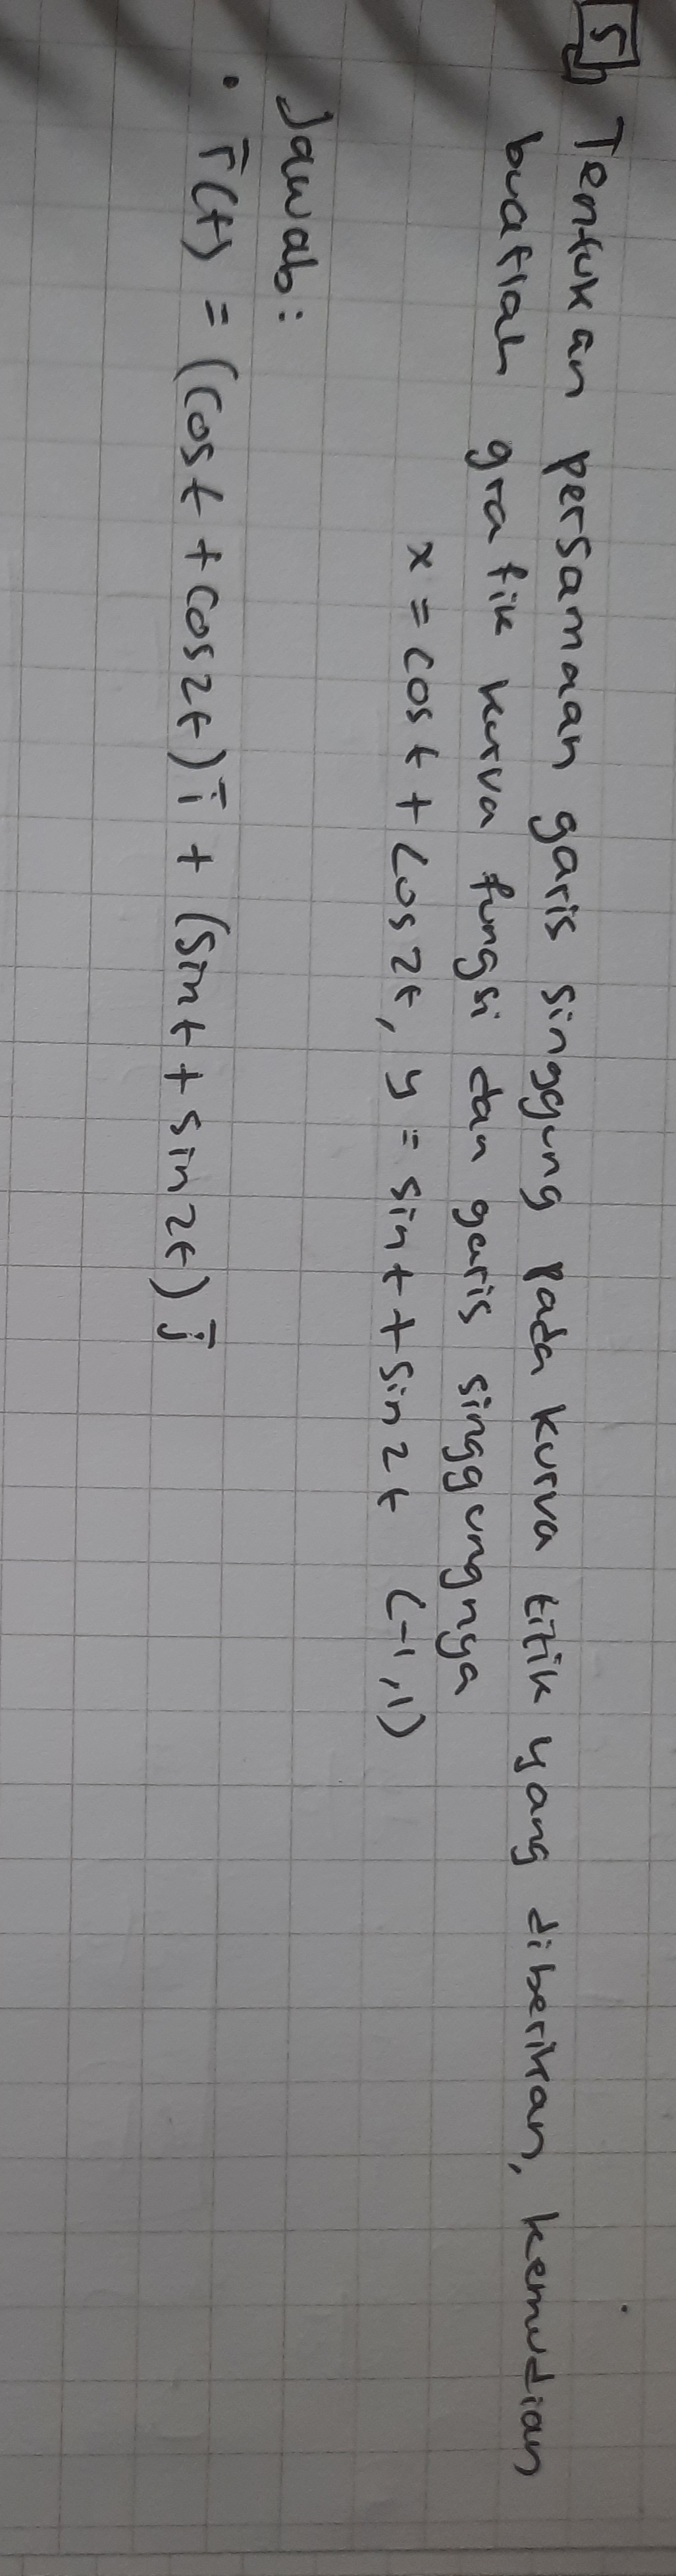 5 Tentukan persamaan garis singgung pada kurva titik yang diberikan, kemudian
buatlah grafik kurva fungsi dan garis singgungnya
x = cos t + cos 2t, y = sin t + sin 2t (-1, 1)
Jawab:
• r̄(t) = (cos t + cos 2t) ī + (sin t + sin 2t) j̄